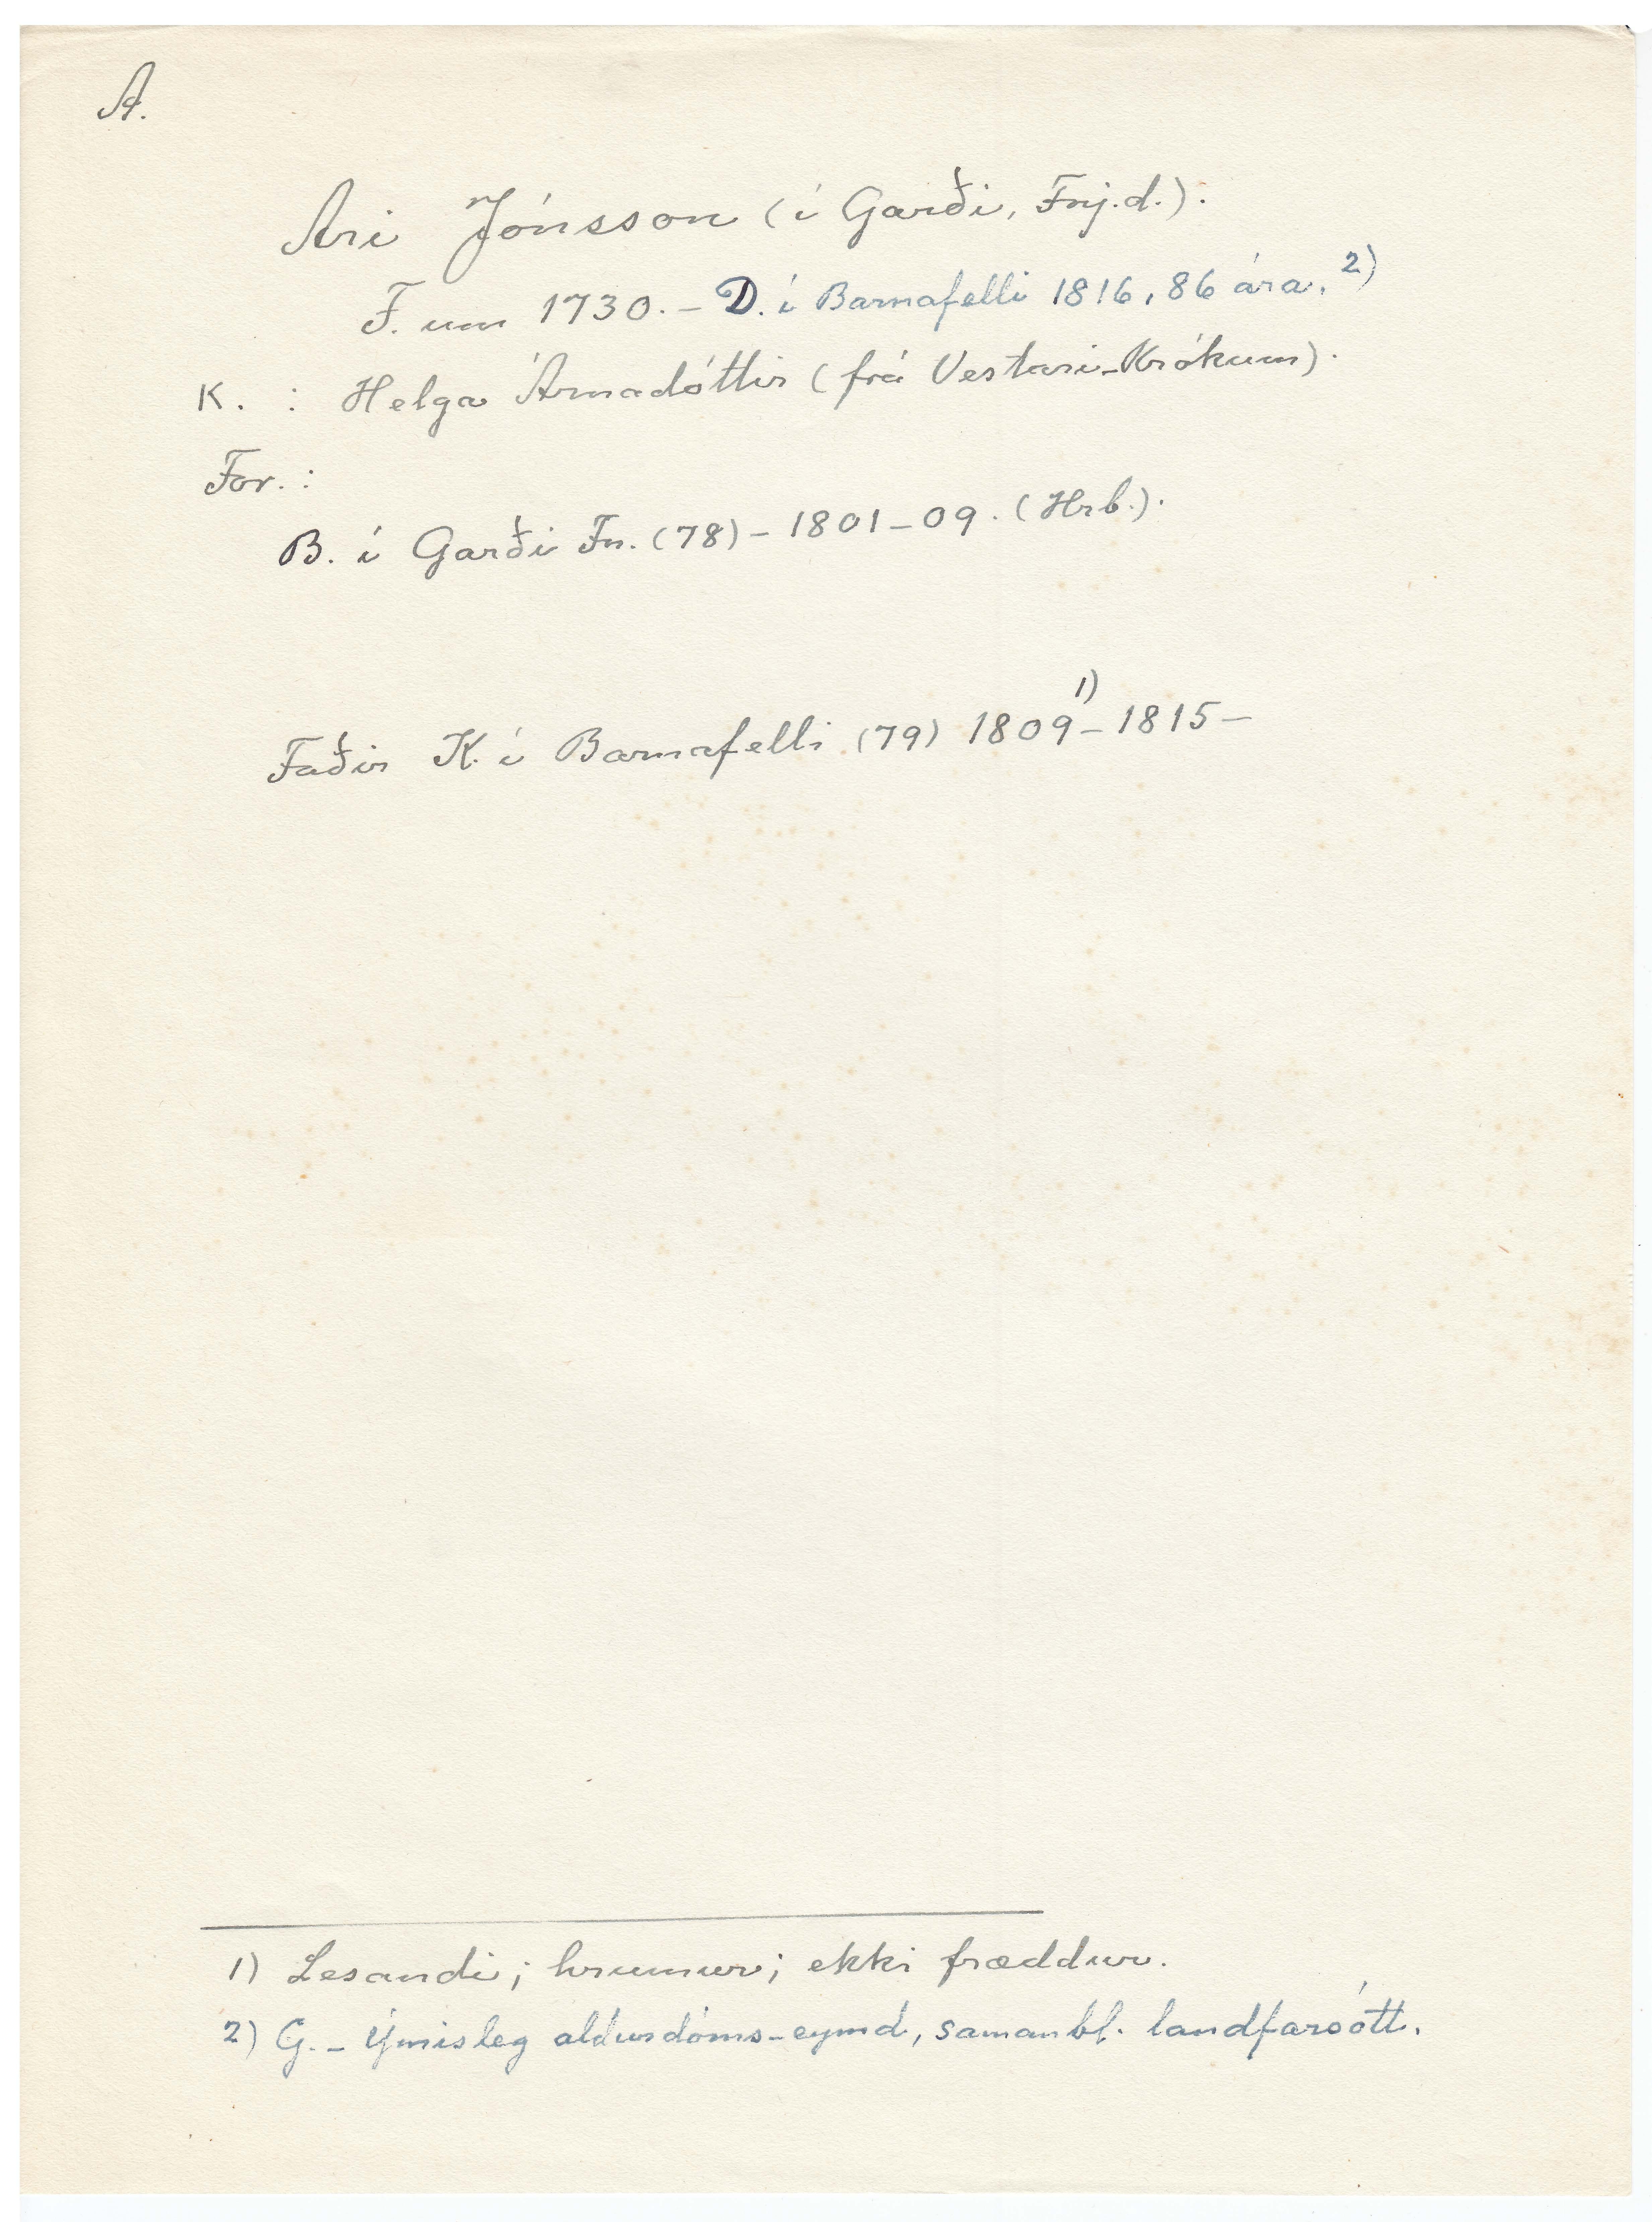 A.
Ari Jónsson (í Garði, Fnj.d.).
F. um 1730. – D. í Barnafelli 1816, 86 ára. 2)
K. : Helga Árnadóttir (frá Vestari-Krókum).
For. :
B. í Garði Fn. (78) – 1801–09. (Hrb.).
1)
Faðir K. í Barnafelli (79) 1809 – 1815 –
1) Lesandi; hrumur; ekki fræddur.
2) G. – Ýmisleg aldurdóms-eymd, samanbl. landfarsótt.